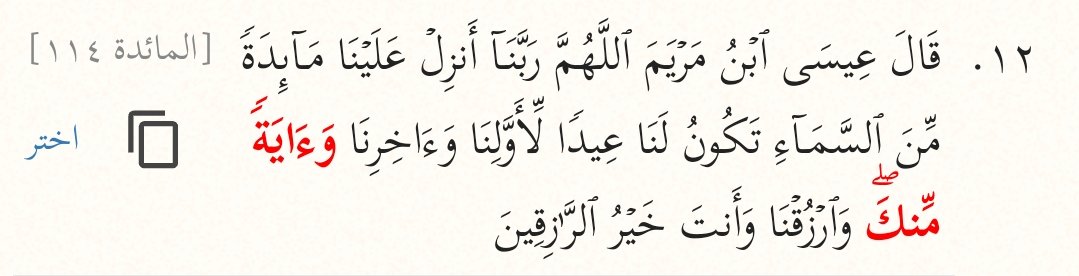 ١٢. قَالَ عِيسَى ٱبْنُ مَرْيَمَ ٱللَّهُمَّ رَبَّنَآ أَنزِلْ عَلَيْنَا مَآئِدَةً [المائدة ١١٤]
مِّنَ ٱلسَّمَآءِ تَكُونُ لَنَا عِيدًا لِّأَوَّلِنَا وَءَاخِرِنَا وَءَايَةً اختر
مِّنكَۖ وَٱرْزُقْنَا وَأَنتَ خَيْرُ ٱلرَّٰزِقِينَ